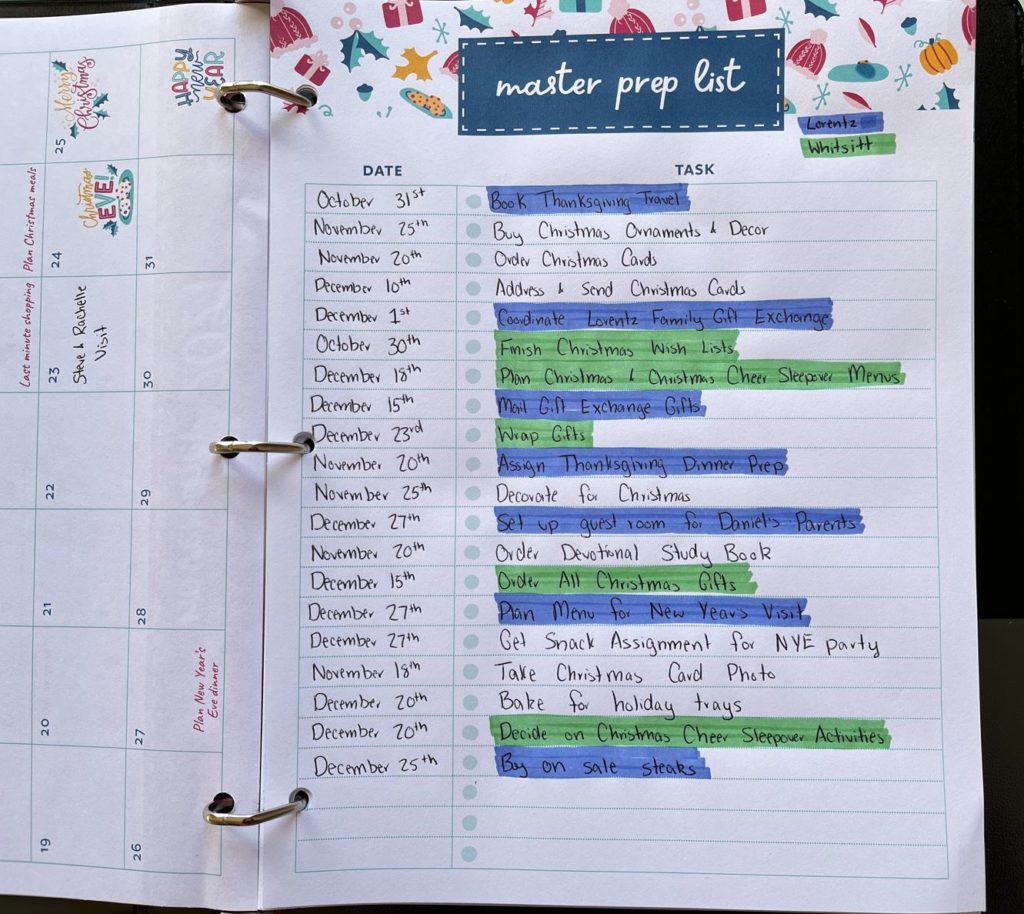 19
20
21
22
23
Last minute shopping
Steve & Rachelle
Visit
24
Plan Christmas meals
Christmas
EVE!
25
Merry
Christmas
26
27
Plan New Year's
Eve dinner
28
29
30
31
HAPPY
new
YEAR
master prep list
Lorentz
Whitsitt
DATE TASK
October 31st Book Thanksgiving Travel
November 25th Buy Christmas Ornaments & Decor
November 20th Order Christmas Cards
December 10th Address & Send Christmas Cards
December 1st Coordinate Lorentz Family Gift Exchange
October 30th Finish Christmas Wish Lists
December 18th Plan Christmas & Christmas Cheer Sleepover Menus
December 15th Mail Gift Exchange Gifts
December 23rd Wrap Gifts
November 20th Assign Thanksgiving Dinner Prep
November 25th Decorate for Christmas
December 27th Set up guest room for Daniel's Parents
November 20th Order Devotional Study Book
December 15th Order All Christmas Gifts
December 27th Plan Menu for New Year's Visit
December 27th Get Snack Assignment for NYE party
November 18th Take Christmas Card Photo
December 20th Bake for holiday trays
December 20th Decide on Christmas Cheer Sleepover Activities
December 25th By on sale steaks